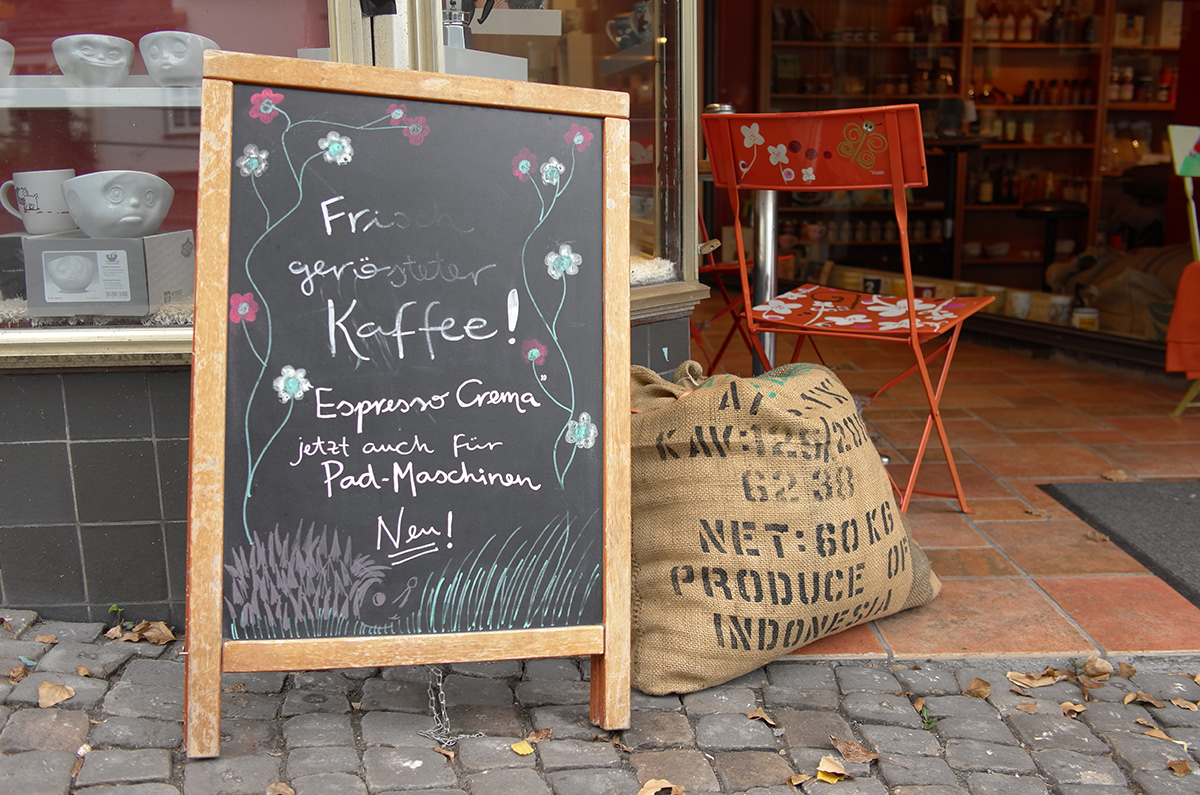 Frisch
gerösteter
Kaffee!
Espresso Crema
jetzt auch für
Pad-Maschinen
Neu!
KAV:129/20
6238
NET:60KG
PRODUCE OF
INDONESIA